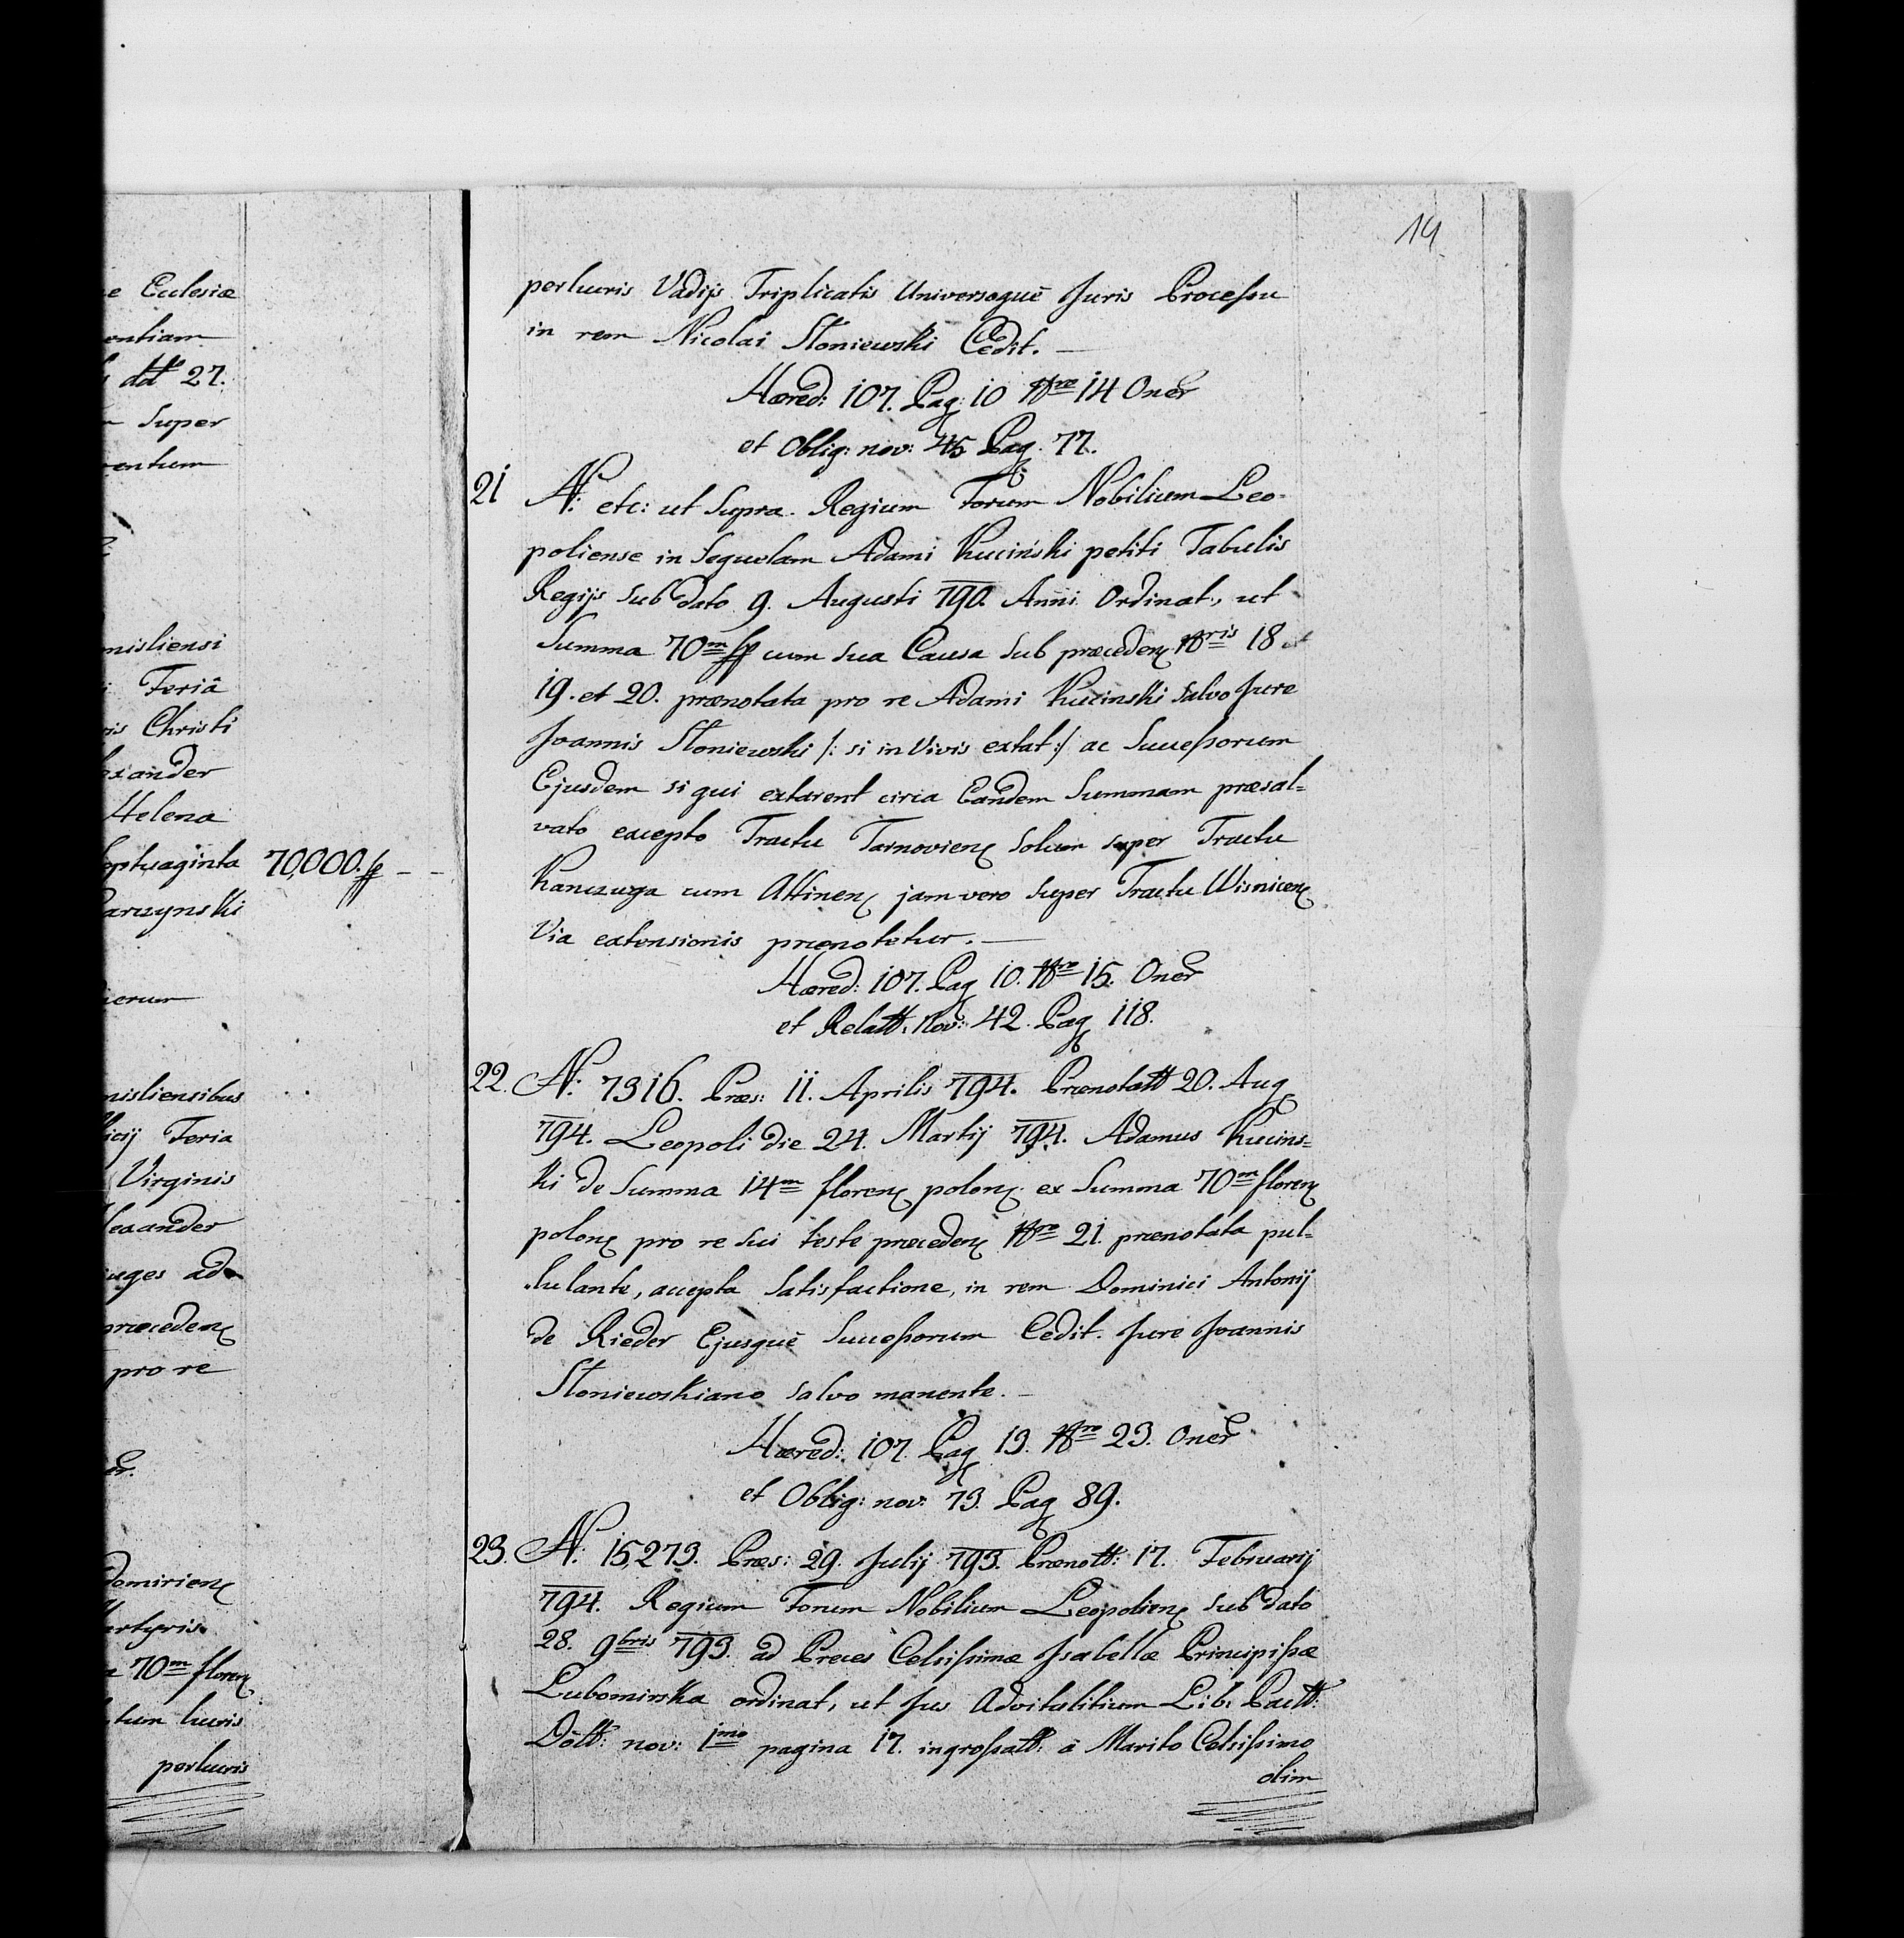 e Ecclesiæ
entiam
dd 27.
Super
entum
misliensi
Feriâ
ris Christi
lexander
Helena
eptuaginta 70,000. fp - -
Parczynski
ierum
misliensibus
licij Feria
Virginis
lexander
iuges ad
præcedenç
pro re
domirienç
Martyris
70m florenç
tum lucris
perlucris
14
perlucris Vadijs Triplicatis Universoquè Juris Processu
in rem Nicolai Sloniewski Cedit. —
Hæred: 107. Pag: 10 Nro 14 Oner
et Oblig: nov: 45 Pag. 77.
21 N: etc: ut Supra. Regium Forum Nobilium Leo-
poliense in Sequelam Adami Kuciński petiti Tabulis
Regijs sub dato 9. Augusti 790. Anni Ordinat, ut
Summa 70m fp cum sua Causa sub præcedenç Nris 18 et
19. et 20. prænotata pro re Adami Kucinski salvo Jure
Joannis Sloniewski /: si in Vivis extat :/ ac Successorum
Ejusdem si qui extarent circa Eandem Summam præsal-
vato excepto Tractu Tarnovienç solum super Tractu
Kanczuga cum Attinenç jam vero super Tractu Wisnicenç
Via extensionis prænotetur. —
Hæred: 107. Pag 10. Nro 15. Oner
et Relatt: Nov: 42. Pag 118.
22. N: 7316. Præs: 11. Aprilis 794. Prænotatt 20. Aug
794. Leopoli die 24. Martij 794. Adamus Kucins-
ki de Summa 14m florenç polonç ex Summa 70m florenç
polonç pro re sui teste præcedenç Nro 21. prænotata pul-
lulante, accepta satisfactione, in rem Dominici Antonij
de Rieder Ejusquè Successorum Cedit. Jure Joannis
Sloniewskiano salvo manente. —
Hæred: 107. Pag 13. Nro 23. Oner
et Oblig: nov: 73. Pag 89.
23. N: 15,273. Præs: 29. Julij 793. Prænott: 17. Februarij
794. Regium Forum Nobilium Leopolienç sub dato
28. 9bris 793. ad Preces Celsissimæ Isabellæ Principissæ
Lubomirska ordinat, ut Jus Advitalitium Lib: Pactt:
Dott: nov: 1mo pagina 17. ingrossatt: à Marito Celsissimo
olim